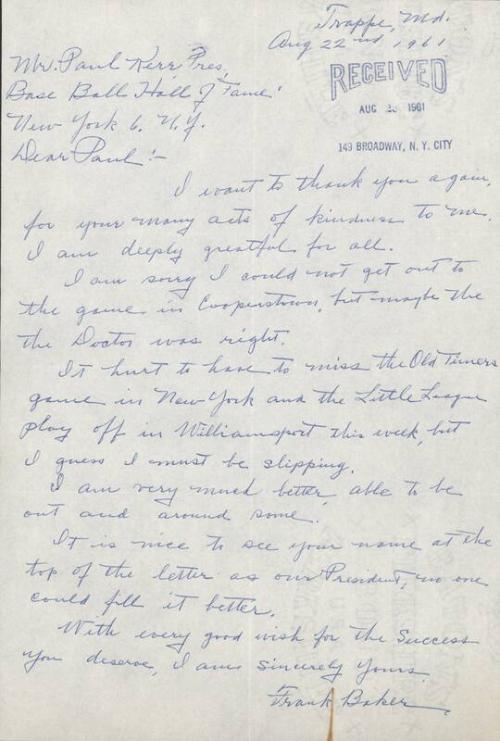 Trappe, Md.
Aug 22nd, 1961
Mr. Paul Kerr, Pres,
Base Ball Hall of Fame:
New York 6. N.Y.
RECEIVED
AUG 1961
149 BROADWAY, N. Y. CITY
Dear Paul:-
I want to thank you again,
for your many acts of kindness to me.
I am deeply greatful for all.
I am sorry I could not get out to
the game in Cooperstown, but maybe the
the Doctor was right.
It hurt to have to miss the Old Timers
game in New York and the Little League
play off in Williamsport this week, but
I guess I must be slipping.
I am very much better, able to be
out and around some.
It is nice to see your name at the
top of the letter as our President, no one
could fill it better.
With every good wish for the Success
you deserve, I am Sincerely Yours.
Frank Baker